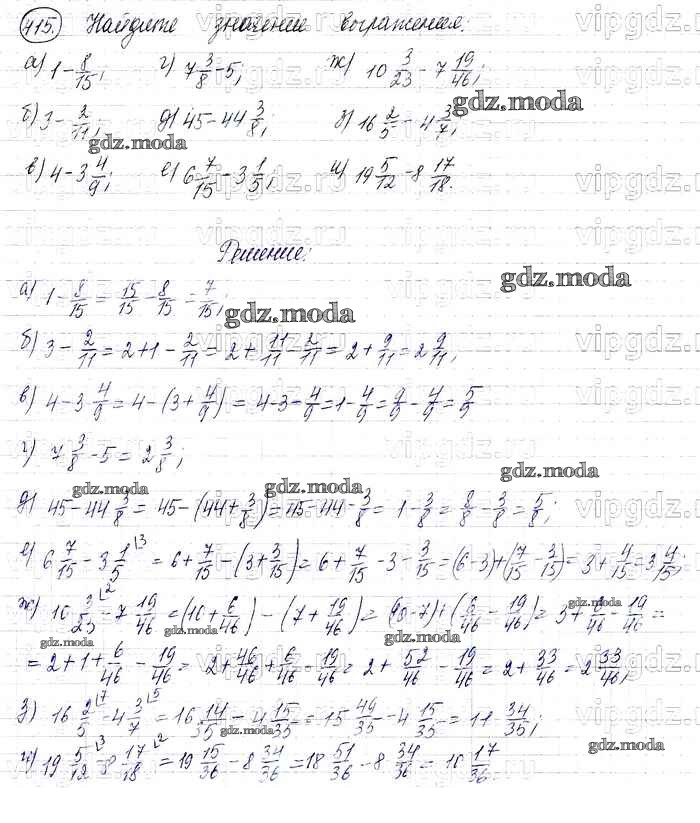 415. Найдите значение выражения:
а) 1 - 8/15; г) 7 3/8 - 5; ж) 10 3/23 - 7 19/46;
б) 3 - 2/11; д) 45 - 44 3/8; з) 16 2/5 - 4 3/7;
в) 4 - 3 4/9; е) 6 7/15 - 3 1/5; и) 19 5/12 - 8 17/18.
Решение:
а) 1 - 8/15 = 15/15 - 8/15 = 7/15;
б) 3 - 2/11 = 2 + 1 - 2/11 = 2 + 11/11 - 2/11 = 2 + 9/11 = 2 9/11;
в) 4 - 3 4/9 = 4 - (3 + 4/9) = 4 - 3 - 4/9 = 1 - 4/9 = 9/9 - 4/9 = 5/9
г) 7 3/8 - 5 = 2 3/8;
д) 45 - 44 3/8 = 45 - (44 + 3/8) = 45 - 44 - 3/8 = 1 - 3/8 = 8/8 - 3/8 = 5/8;
е) 6 7/15 - 3 1/5 = 6 + 7/15 - (3 + 3/15) = 6 + 7/15 - 3 - 3/15 = (6 - 3) + (7/15 - 3/15) = 3 + 4/15 = 3 4/15;
ж) 10 3/23 - 7 19/46 = (10 + 6/46) - (7 + 19/46) = (10 - 7) + (6/46 - 19/46) = 3 + 6/46 - 19/46 =
= 2 + 1 + 6/46 - 19/46 = 2 + 46/46 + 6/46 - 19/46 = 2 + 52/46 - 19/46 = 2 + 33/46 = 2 33/46;
з) 16 2/5 - 4 3/7 = 16 14/35 - 4 15/35 = 15 49/35 - 4 15/35 = 11 34/35;
и) 19 5/12 - 8 17/18 = 19 15/36 - 8 34/36 = 18 51/36 - 8 34/36 = 10 17/36.
gdz.moda
vipgdz.ru